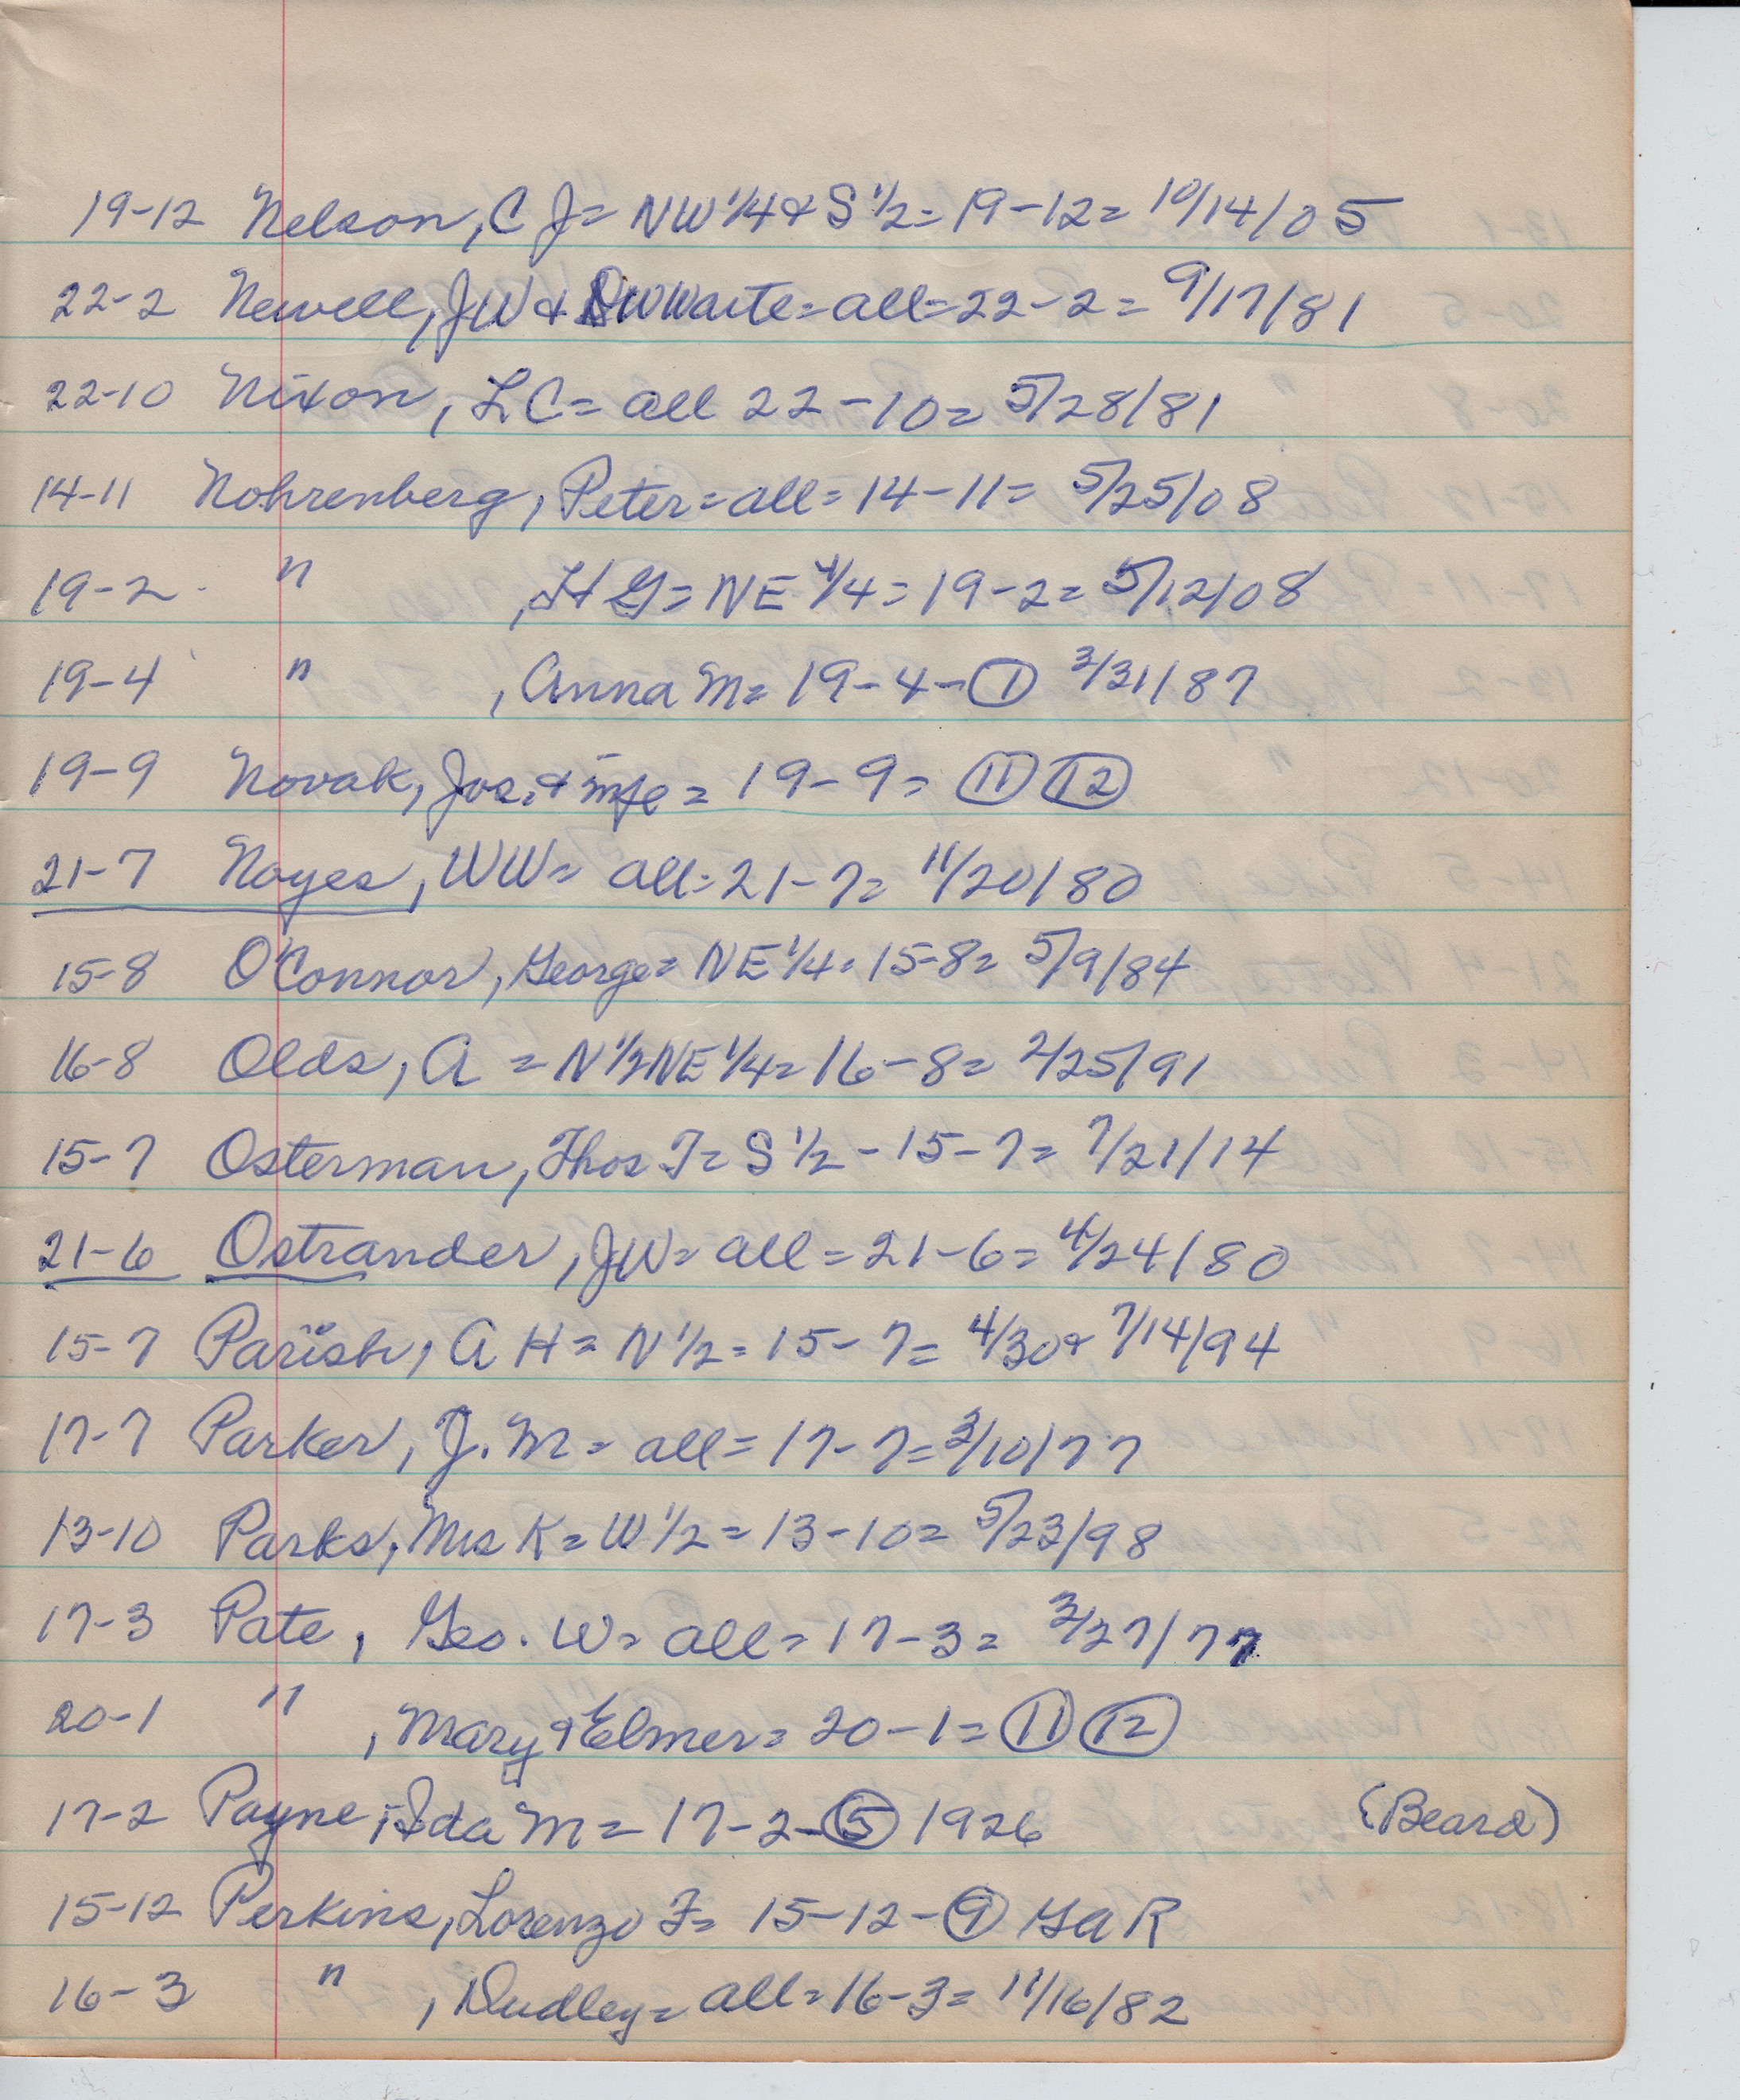 19-12 Nelson, C J= NW 1/4 & S 1/2= 19-12= 10/14/05
22-2 Newell, JW & DW Waite= all= 22-2= 9/17/81
22-10 Nixon, L C= all 22-10= 5/28/81
14-11 Nohrenberg, Peter= all= 14-11= 5/25/08
19-2 " , H G= NE 1/4= 19-2= 5/12/08
19-4 " , Anna M= 19-4-① 3/31/87
19-9 Novak, Jos. & wife= 19-9= ⑪ ⑫
21-7 Noyes, WW= all= 21-7= 11/20/80
15-8 O'Connor, George= NE 1/4= 15-8= 5/9/84
16-8 Olds, A = N 1/2 NE 1/4= 16-8= 2/25/91
15-7 Osterman, Thos T= S 1/2 - 15-7= 7/21/14
21-6 Ostrander, JW= all= 21-6= 4/24/80
15-7 Parish, A H= N 1/2= 15-7= 4/30 & 7/14/94
17-7 Parker, J. M= all= 17-7= 3/10/77
13-10 Parks, Mrs K= W 1/2= 13-10= 5/23/98
17-3 Pate, Geo. W= all= 17-3= 3/27/77
20-1 " , Mary & Elmer= 20-1= ⑪ ⑫
17-2 Payne, Ida M= 17-2-⑤ 1926 (Beard)
15-12 Perkins, Lorenzo F= 15-12-⑨ GAR
16-3 " , Dudley= all= 16-3= 11/16/82